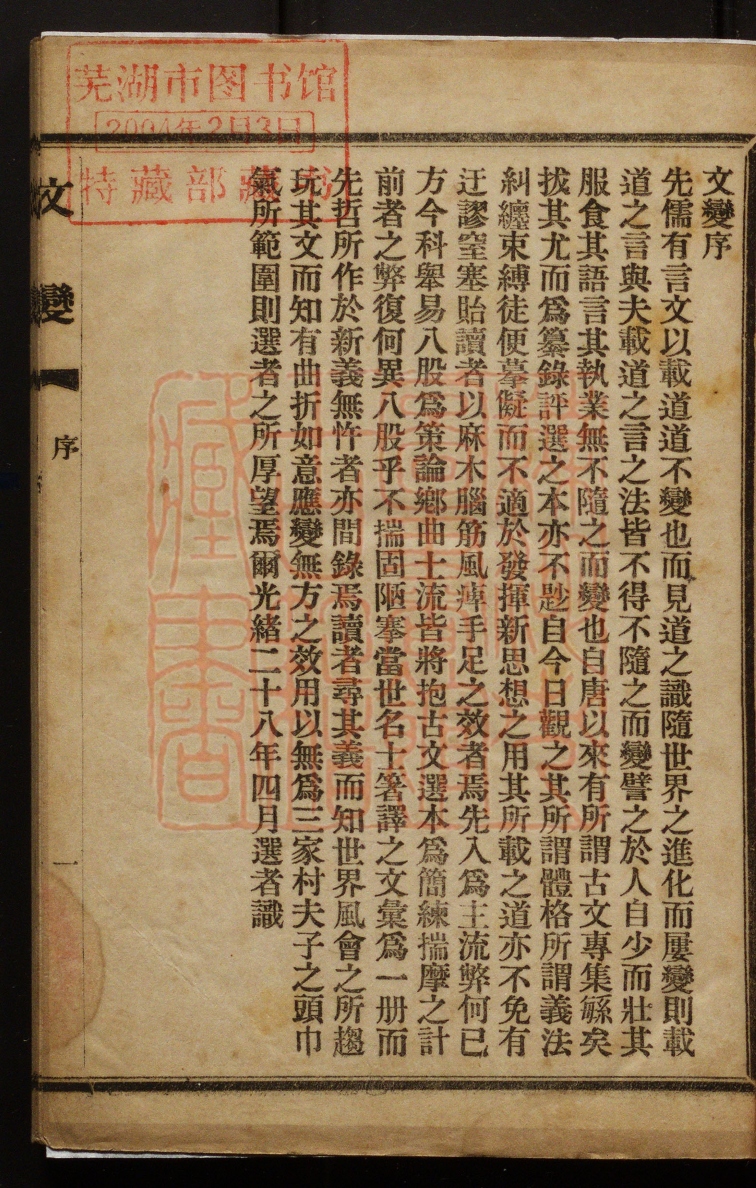 文變序
先儒有言文以載道道不變也而見道之識隨世界之進化而屢變則載
道之言與夫載道之言之法皆不得不隨之而變譬之於人自少而壯其
服食其語言其執業無不隨之而變也自唐以來有所謂古文專集繇矣
拔其尤而爲纂錄評選之本亦不尠自今日觀之其所謂體格所謂義法
糾纏束縛徒便摹儗而不適於發揮新思想之用其所載之道亦不免有
迂謬窒塞貽讀者以麻木腦筋風痺手足之效者焉先入爲主流弊何已
方今科舉易八股爲策論鄉曲士流皆將抱古文選本爲簡練揣摩之計
前者之弊復何異八股乎不揣固陋搴當世名士箸譯之文彙爲一册而
先哲所作於新義無忤者亦間錄焉讀者尋其義而知世界風會之所趨
玩其文而知有曲折如意應變無方之效用以無爲三家村夫子之頭巾
氣所範圍則選者之所厚望焉爾光緒二十八年四月選者識
文變
序
一
芜湖市图书馆
2004年2月3日
特藏部藏书